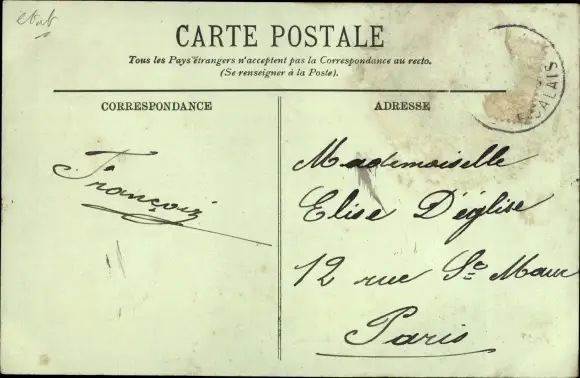 etab
CARTE POSTALE
Tous les Pays étrangers n'acceptent pas la Correspondance au recto.
(Se renseigner à la Poste).
CORRESPONDANCE
ADRESSE
François
Mademoiselle
Elise D'église
12 rue St Maur
Paris
CALAIS